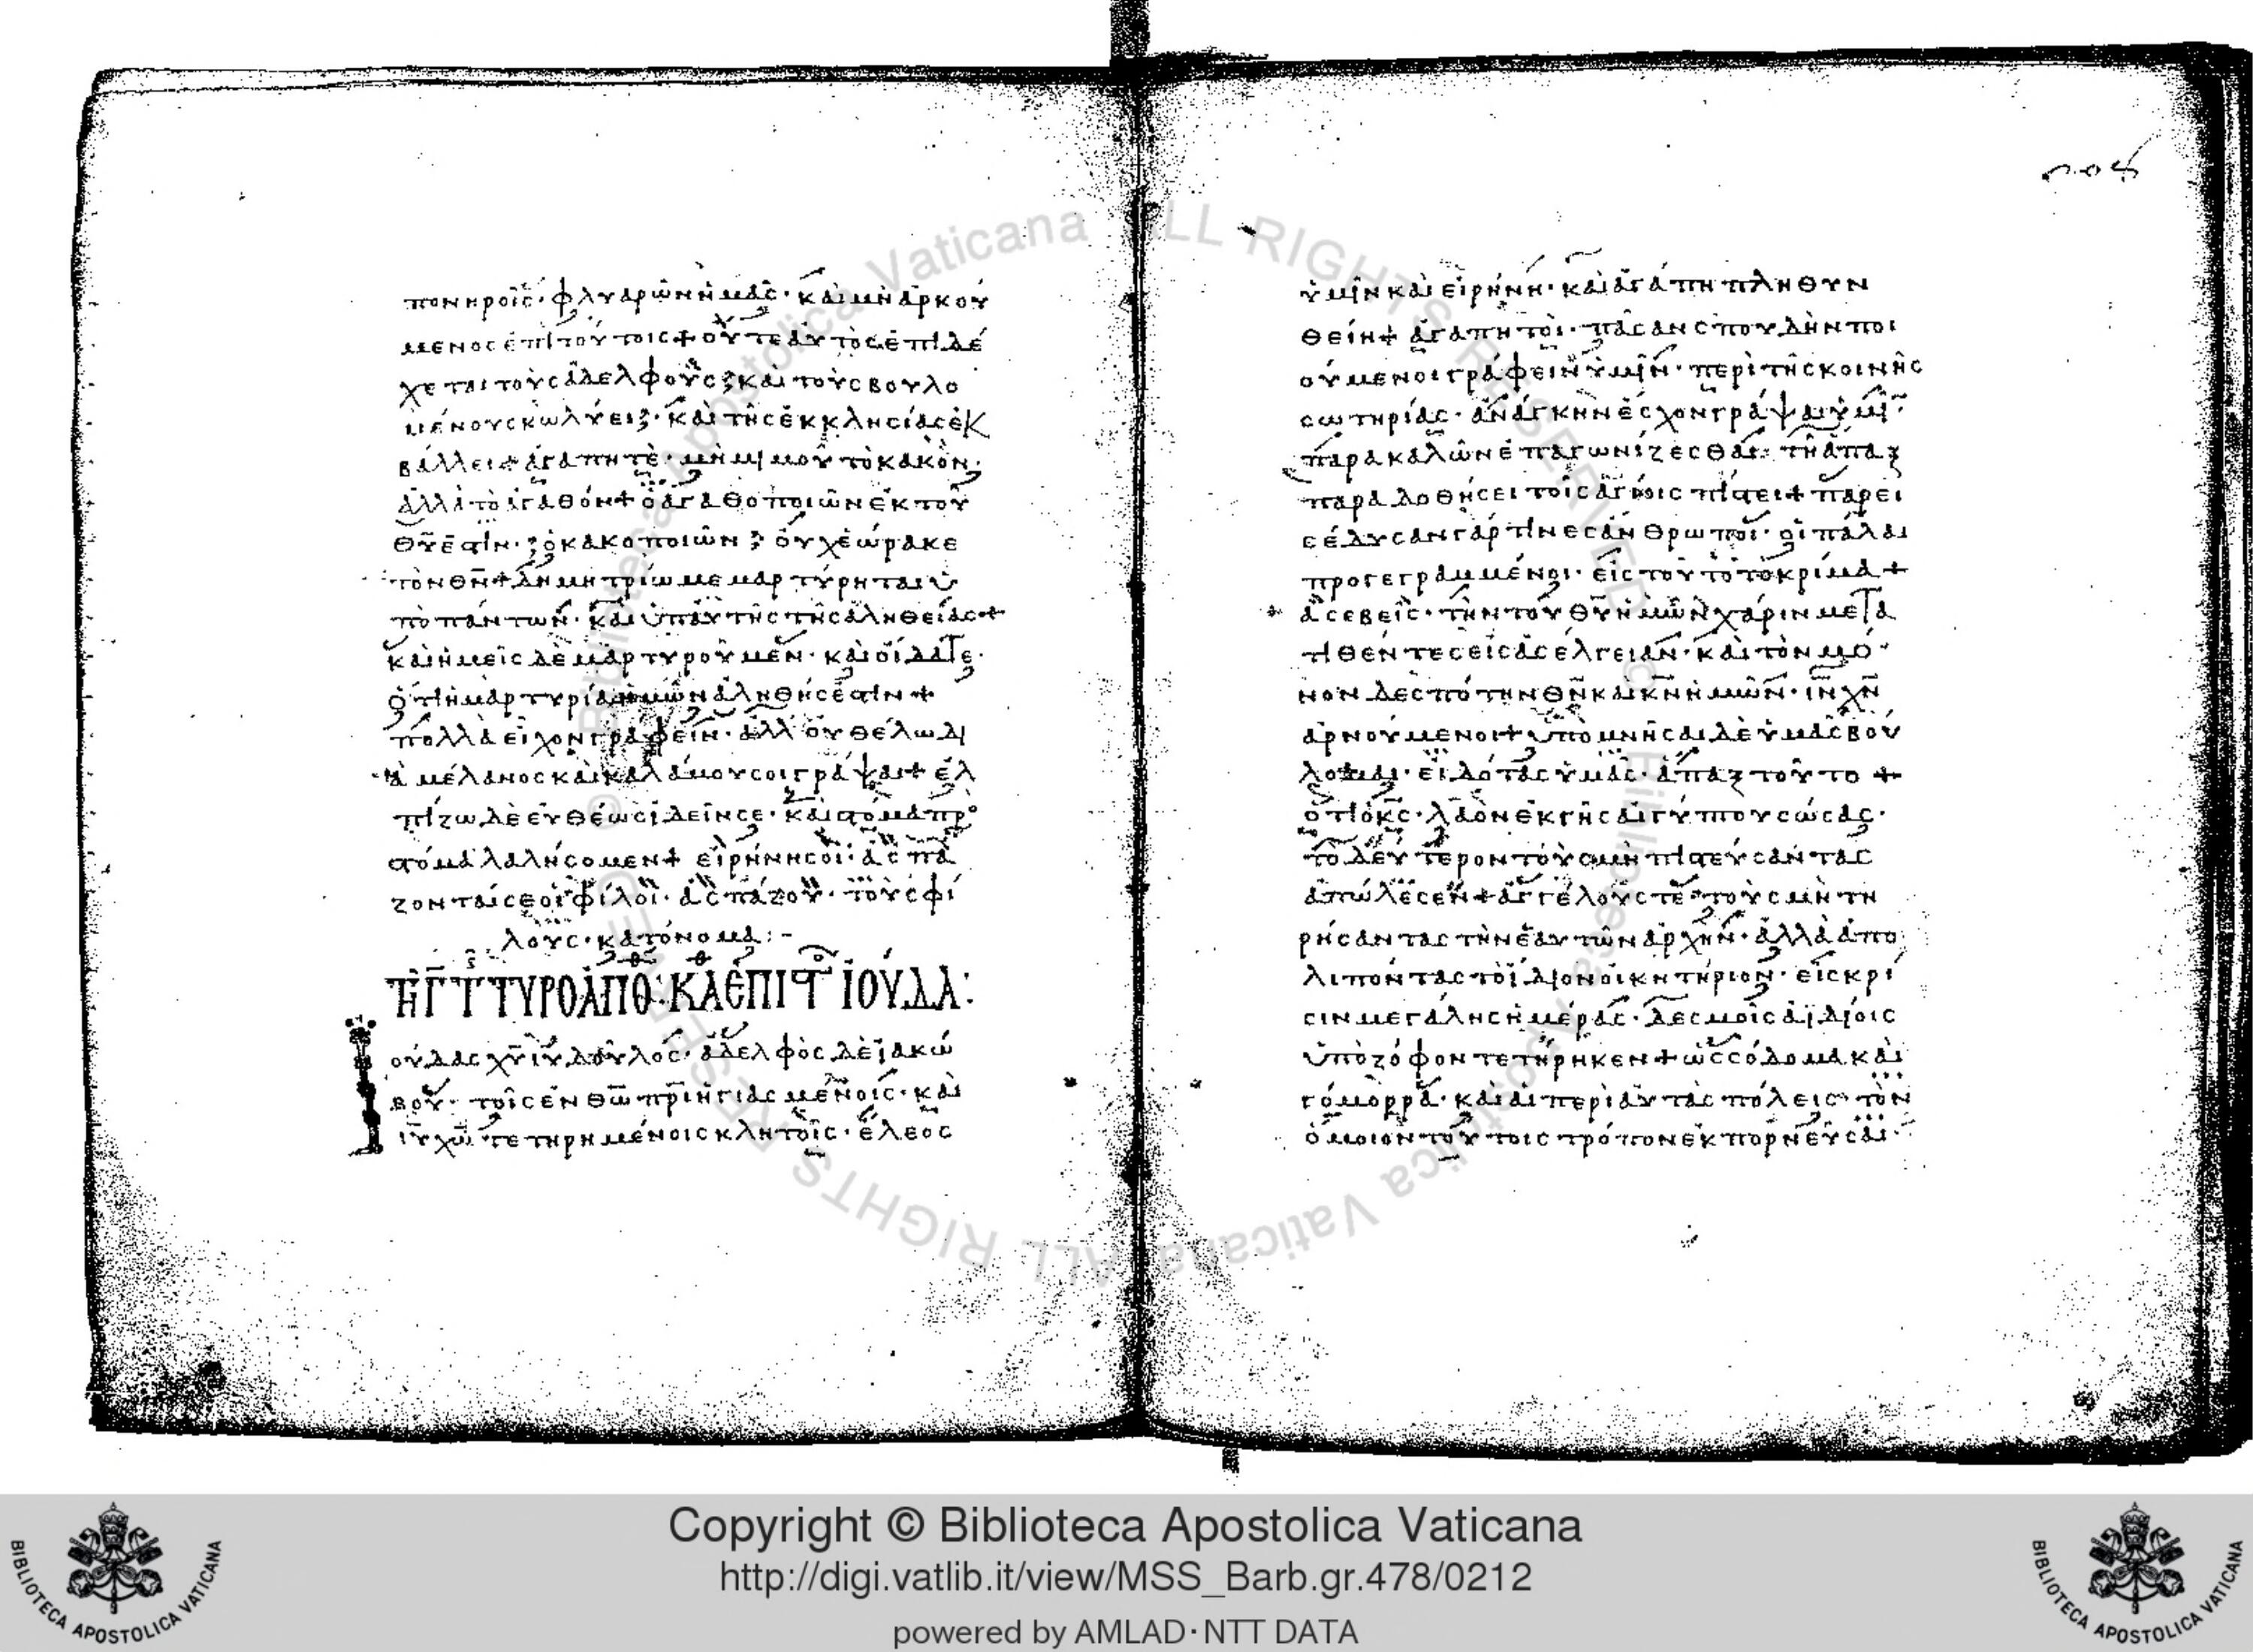 πονηροῖς· φλυαρῶν ἡμᾶς· καὶ μὴ ἀρκού
μενος ἐπὶ τούτοις + οὔτε αὐτὸς ἐπιδέ
χεται τοὺς ἀδελφούς· καὶ τοὺς βουλο
μένους κωλύει· καὶ τῆς ἐκκλησίας ἐκ
βάλλει + ἀγαπητὲ· μὴ μιμοῦ τὸ κακὸν·
ἀλλὰ τὸ ἀγαθόν + ὁ ἀγαθοποιῶν ἐκ τοῦ
θῡ ἐστὶν· ὁ κακοποιῶν οὐχ ἑώρακε
τὸν θν̄ + δημητρίω μεμαρτύρηται ὑ
πὸ πάντων· καὶ ὑπ' αὐτῆς τῆς ἀληθείας +
καὶ ἡμεῖς δὲ μαρτυροῦμεν· καὶ οἴδατε·
ὅτι ἡ μαρτυρία ἡμῶν ἀληθής ἐστιν +
πολλὰ εἶχον γράφειν· ἀλλ' οὐ θέλω δι
ὰ μέλανος καὶ καλάμου σοι γράψαι + ἐλ
πίζω δὲ εὐθέως ἰδεῖν σε· καὶ στόμα πρὸ
στόμα λαλήσομεν + εἰρήνη σοι· ἀσπά
ζονταί σε οἱ φίλοι· ἀσπάζου· τοὺς φί
λους· κατ' όνομα :-
ΤΗ Γ ΤΥΡΟΑΠΟ: ΚΑ ΕΠΙΣΤ ΙΟΥΔΑ:
Ιούδας χῡ ῑῡ δοῦλος· ἀδελφὸς δὲ ἰακώ
βου· τοῖς ἐν θω̄ πρ̄ι ἡγιασμένοις· καὶ
ῑῡ χω̄ τετηρημένοις κλητοῖς· ἔλεος
ὑμῖν καὶ εἰρήνη· καὶ ἀγάπη πληθυν
θείη + ἀγαπητοὶ· πᾶσαν σπουδὴν ποι
ούμενοι γράφειν ὑμῖν· περὶ τῆς κοινῆς
σωτηρίας· ἀνάγκην ἔσχον γράψαι ὑμῖ
παρακαλῶν ἐπαγωνίζεσθαι τῆ ἅπαξ
παραδοθήσει τοῖς ἁγίοις πίστει + παρει
σέδυσαν γάρ τινες ἄνθρωποι· οἱ πάλαι
προγεγραμμένοι· εἰς τοῦτο τὸ κρίμα +
ἀσεβεῖς· τὴν τοῦ θῡ ἡμῶν χάριν μετα
τιθέντες εἰς ἀσέλγειαν· καὶ τὸν μό
νον δεσπότην θν̄ καὶ κν̄ ἡμῶν· ῑν̄ χν̄
ἀρνούμενοι + ὑπομνῆσαι δὲ ὑμᾶς βού
λομαι· εἰδότας ὑμᾶς· ἅπαξ τοῦτο +
ὅτι ὁ κς̄· λαὸν ἐκ γῆς αἰγύπτου σώσας·
τὸ δεύτερον τοὺς μὴ πιστεύσαντας
ἀπώλεσεν + ἀγγέλους τε τοὺς μὴ τη
ρήσαντας τὴν ἑαυτῶν ἀρχὴν· ἀλλὰ ἀπο
λιπόντας τὸ ἴδιον οἰκητήριον· εἰς κρί
σιν μεγάλης ἡμέρας· δεσμοῖς ἀϊδίοις
ὑπὸ ζόφον τετήρηκεν + ὡς σόδομα καὶ
γόμορρα· καὶ αἱ περὶ αὐτὰς πόλεις· τὸν
ὅμοιον τούτοις τρόπον ἐκπορνεύσαι·
ALL RIGHTS RESERVED © Biblioteca Apostolica Vaticana
Copyright © Biblioteca Apostolica Vaticana
http://digi.vatlib.it/view/MSS_Barb.gr.478/0212
powered by AMLAD·NTT DATA
BIBLIOTECA APOSTOLICA VATICANA
BIBLIOTECA APOSTOLICA VATICANA